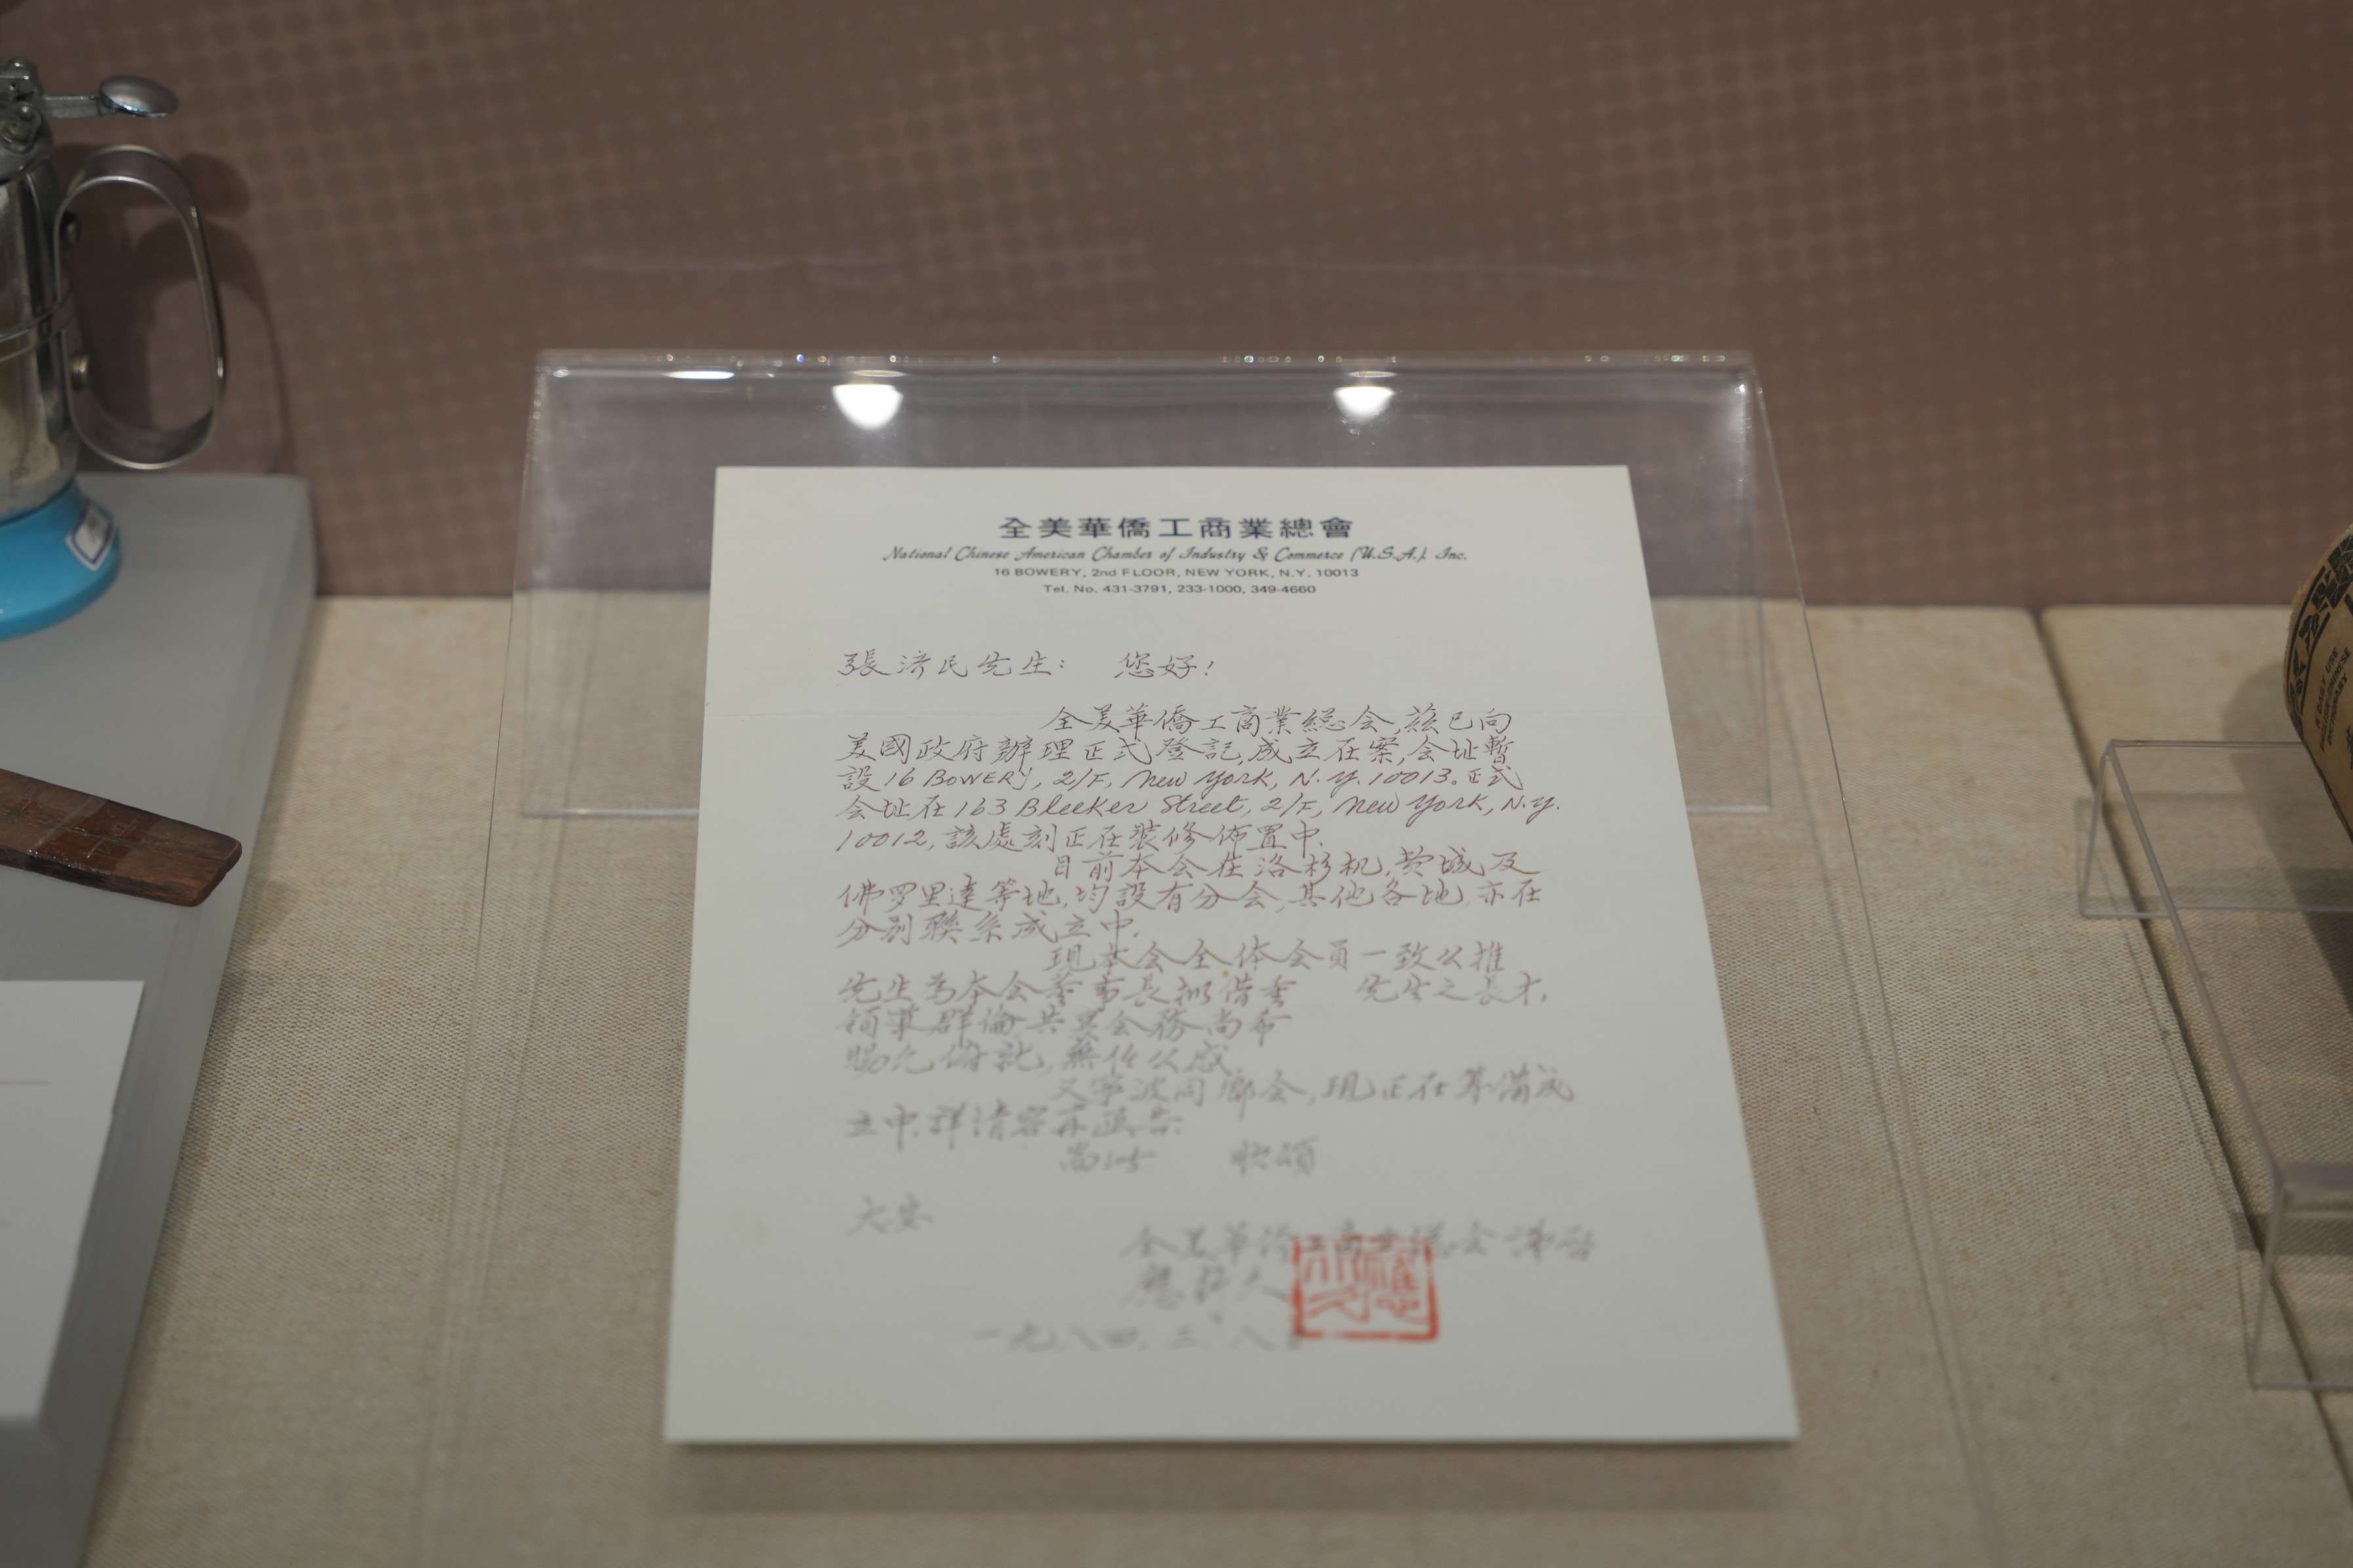 全美華僑工商業總會
National Chinese American Chamber of Industry & Commerce (U.S.A.), Inc.
16 BOWERY, 2nd FLOOR, NEW YORK, N.Y. 10013
Tel. No. 431-3791, 233-1000, 349-4660
張济民先生: 您好!
全美華僑工商業總会,茲已向
美國政府辦理正式登記,成立在案,会址暫
設16 BOWERY, 2/F, New York, N.Y. 10013。正式
会址在163 Bleeker Street, 2/F, New York, N.Y.
10012,該處刻正在裝修佈置中.
目前本会在洛杉机,费城及
佛罗里達等地,均設有分会,其他各地,亦在
分别聯系成立中.
現本会全体会員一致公推
先生為本会董事長擬借重 先生之長才,
領導群倫共襄会務尚希
賜允俯就,無任公感
又寧波同鄉会,現正在筹備成
立中,詳情容再函告.
耑此 快頌
大安
全美華僑工商業總会謹啓
應行久
一九八四.三.八
A DAILY USE
ENGLISH-CHINESE
DICTIONARY